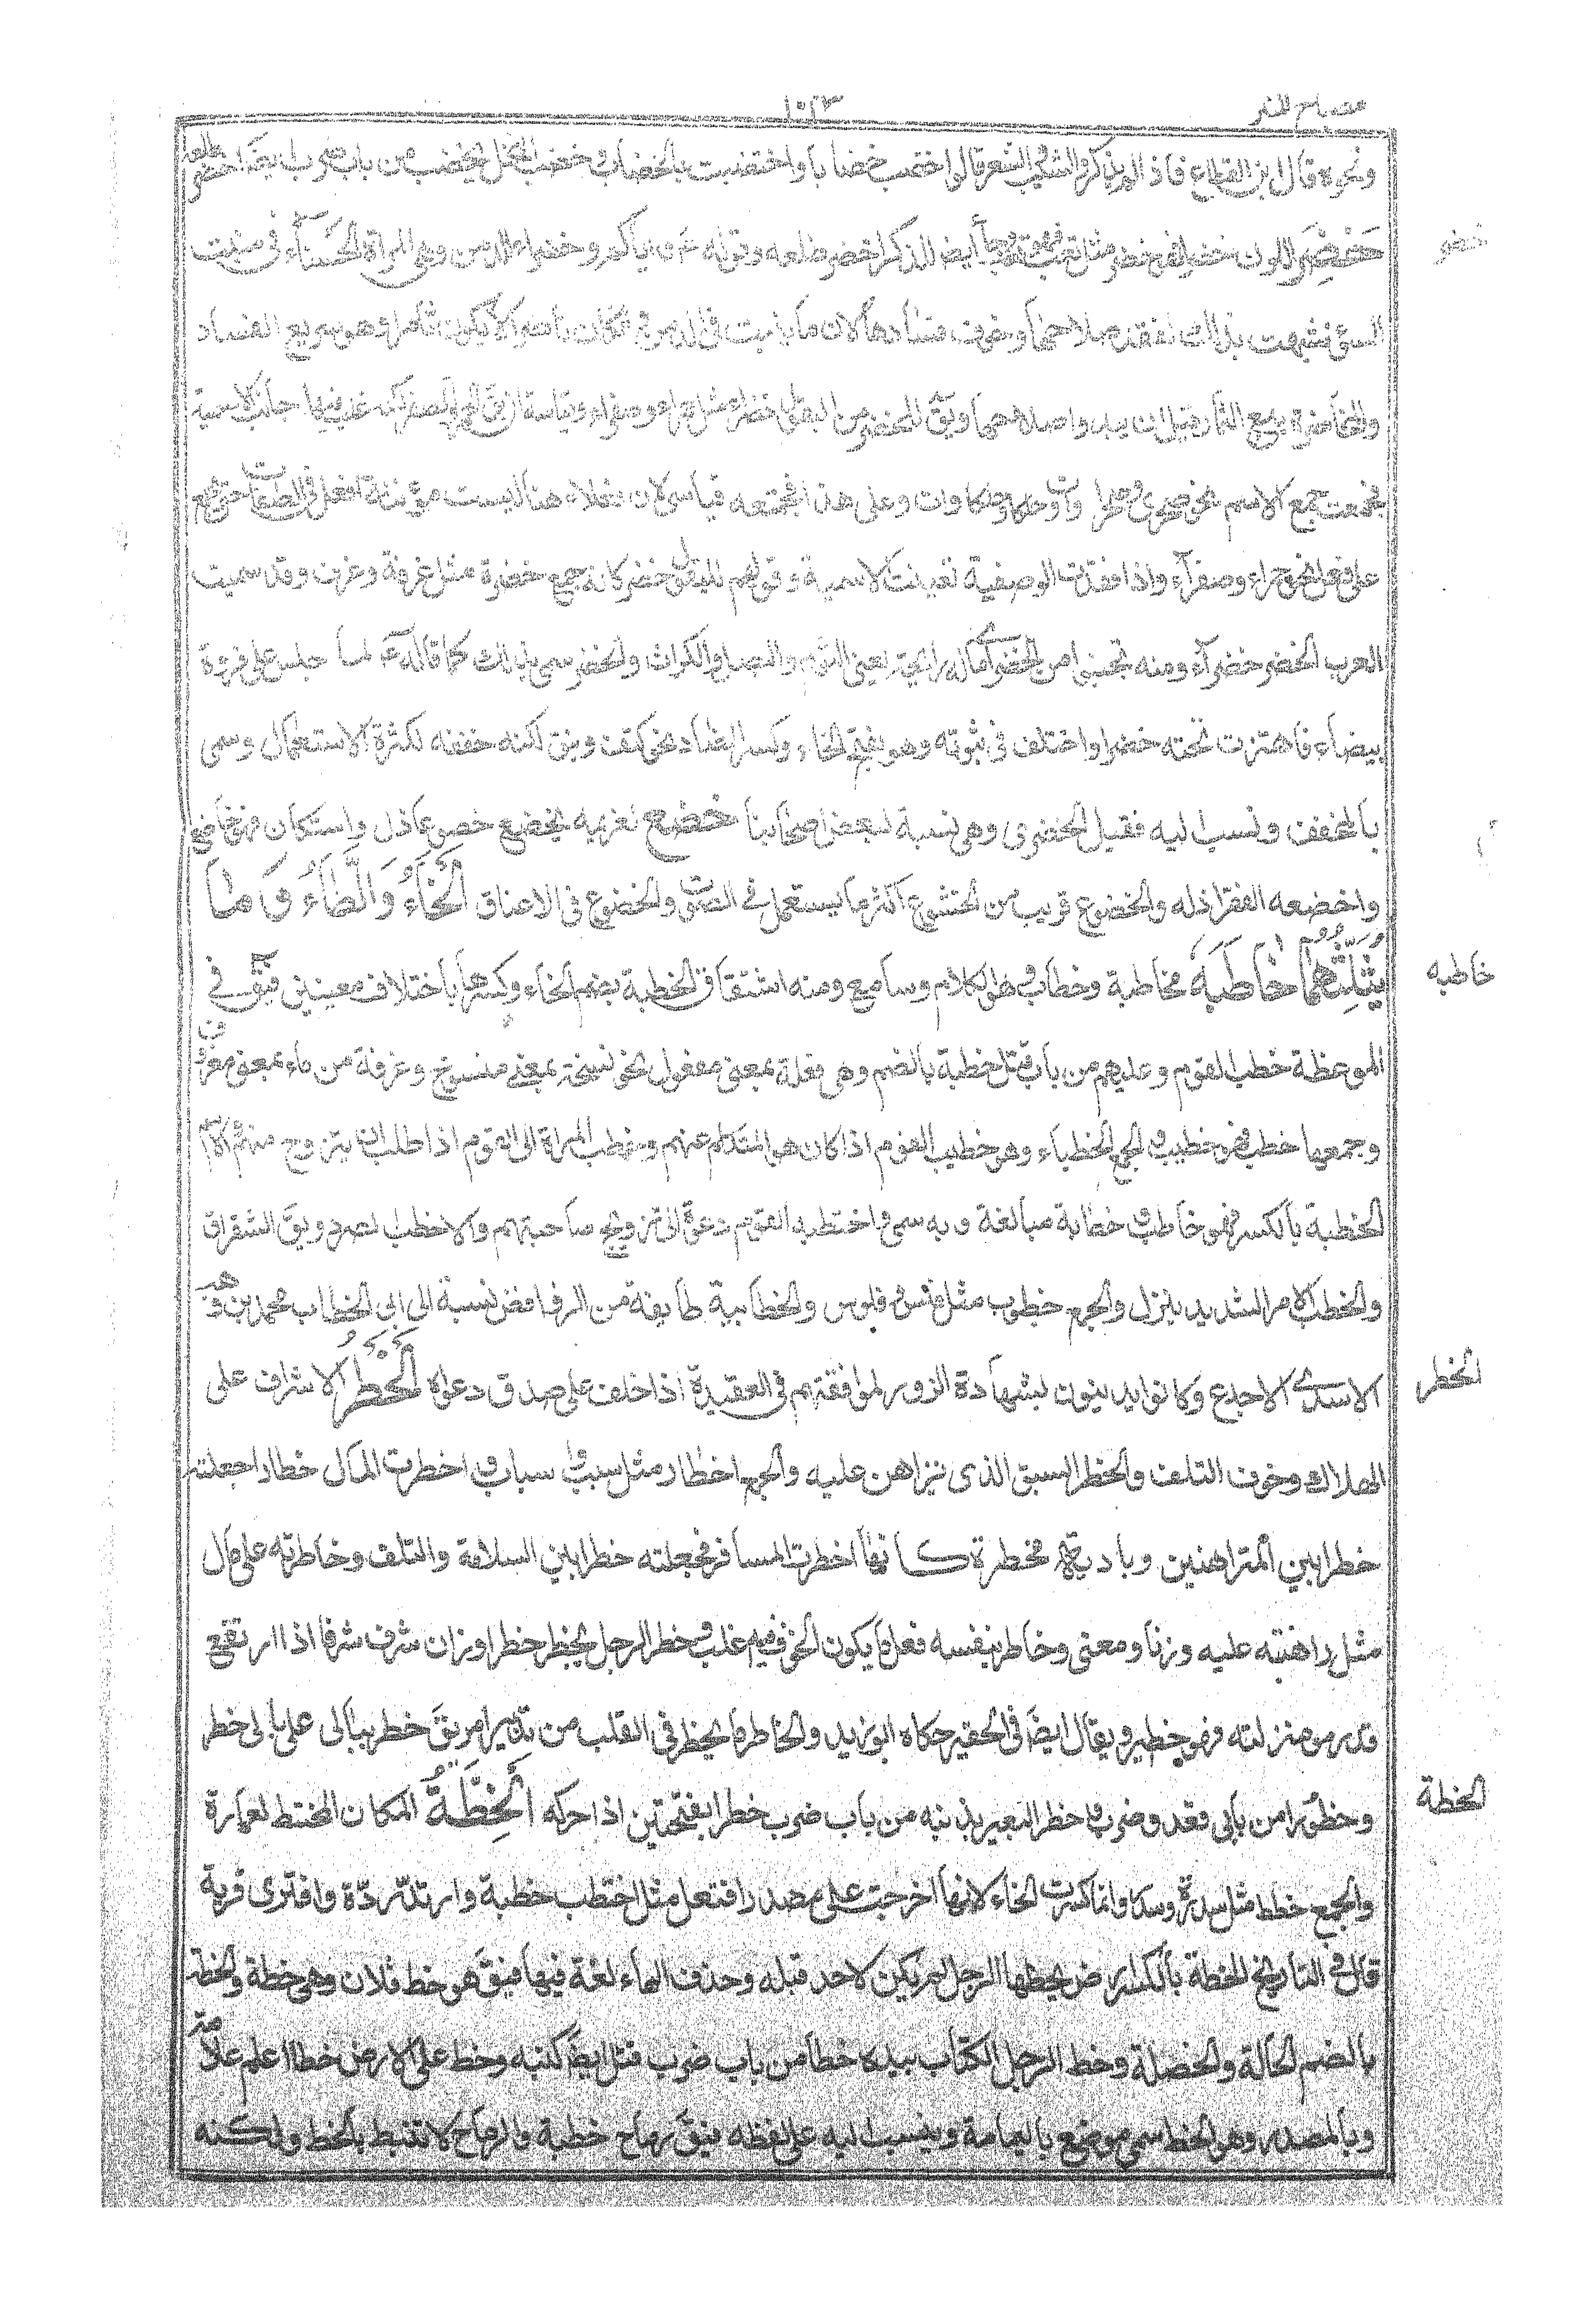 مصباح المنير
١٠٣
ونحوه قال ابن القطاع فاذا لم يذكروا الشيب والشعر قالوا اختضب خضابا واختضبت بالخضاب وخضب النخل يخضب من باب ضرب ايضا اخضر طلعه
خضر اللون خضرا فهو خضر مثل تعب تعبا فهو تعب وجاء ايضا للذكر اخضر وللانثى خضراء وقوله ع م اياكم وخضراء الدمن وهي المراة الحسناء في منبت
السوء فشبهت بذلك لفقد صلاحها وخوف فسادها لان ما ينبت في الدمن وان كان ناضرا لا يكون ثامرا وهو سريع الفساد
والمخاضرة بيع الثمار قبل ان يبدو صلاحها ويق للخضر من البقول خضراء مثل حمراء وصفراء وقياسه ان يق الخضر كما يق الحمر والصفر لكنه غلب فيها جانب الاسمية
فجمعت جمع الاسم نحو صحراء وصحراوات وحلكاء وحلكاوات وعلى هذا فجمعه قياسي لان فعلاء هنا ليست مؤنثة افعل في الصفات حتى تجمع
على فعل نحو حمراء وصفراء واذا فقدت الوصفية تعينت الاسمية وقولهم للبقول خضر كانه جمع خضرة مثل غرفة وغرف وقد سميت
العرب الخضر خضراء ومنه تجنبوا من الخضراء ما له رايحة يعني الثوم والبصل والكراث والخضر سمي بذلك كما قال ع لما جلس على فروة
بيضاء فاهتزت تحته خضراء واختلف في نبوته وهو بفتح الخاء وكسر الضاد نحو كتف ونبق لكنه خفف لكثرة الاستعمال وسمي
بالمخفف ونسب اليه فقيل الخضري وهي نسبة لبعض اصحابنا خضع لغريمه يخضع خضوعا ذل واستكان فهو خاضع
واخضعه الفقر اذله والخضوع قريب من الخشوع الا ان الخشوع اكثر ما يستعمل في الصوت والخضوع في الاعناق الخاء والطاء وما
يثلثهما خاطبه مخاطبة وخطابا وهو الكلام بين متكلم وسامع ومنه اشتقاق الخطبة بضم الخاء وكسرها باختلاف معنيين فيق في
الموعظة خطب القوم وعليهم من باب قتل خطبة بالضم وهي فعلة بمعنى مفعول نحو نسخة بمعنى منسوخ وغرفة من ماء بمعنى مغروف
وجمعها خطب فهو خطيب والجمع الخطباء وهو خطيب القوم اذا كان هو المتكلم عنهم وخطب المراة الى القوم اذا طلب ان يتزوج منهم والاسم
الخطبة بالكسر فهو خاطب وخطاب مبالغة وبه سمي واختطبه القوم دعوه الى تزويج صاحبتهم والاخطب الصرد ويق الشقراق
والخطب الامر الشديد ينزل والجمع خطوب مثل فلس وفلوس والخطابية طايفة من الرفافض نسبة الى ابي الخطاب محمد بن وهب
الاسدي الاجدع وكانوا يدينون بشهادة الزور لموافقتهم في العقيدة اذا خلف على صدق دعواه الخطر الاشراف على
الهلاك وخوف التلف والخطر السبق الذي يتراهن عليه والجمع اخطار مثل سبب واسباب واخطرت المال خطارا جعلته
خطرا بين المتراهنين وبادية مخطرة كانها اخطرت المسافر فجعلته خطرا بين السلامة والتلف وخاطرته على مال
مثل راهنته عليه وزنا ومعنى وخاطر بنفسه فعل ما يكون الخوف فيه اغلب وخطر الرجل يخطر خطرا وزان شرف شرفا اذا ارتفع
قدره ومنزلته فهو خطير ويقال ايضا في الحقير حكاه ابو زيد والخاطر ما يخطر في القلب من تدبير امر يق خطر ببالي وعلى بالي خطرا
وخطورا من بابي قعد وضرب وخطر البعير بذنبه من باب ضرب خطرا بفتحتين اذا حركه الخطة المكان المختط لعمارة
والجمع خطط مثل سدرة وسدر وانما كسرت الخاء لانها اخرجت على مصدر افتعل مثل اختطب خطبة وارتد ردة وافترى فرية
قال في التاريخ الخطة بالكسر ارض يختطها الرجل لم يكن لاحد قبله وحذف الهاء لغة فيها فيق هو خط فلان وهي خطة والخطة
بالضم الحالة والخصلة وخط الرجل الكتاب بيده خطا من باب ضرب قتل ايضا كتبه وخط على الارض خطا اعلم علامة
وبالمصدر وهو الخط سمي موضع باليمامة وينسب اليه على لفظه فيق رماح خطية والرماح لا تنبط بالخط ولكنه
خضر
خاطبه
الخطر
الخطة